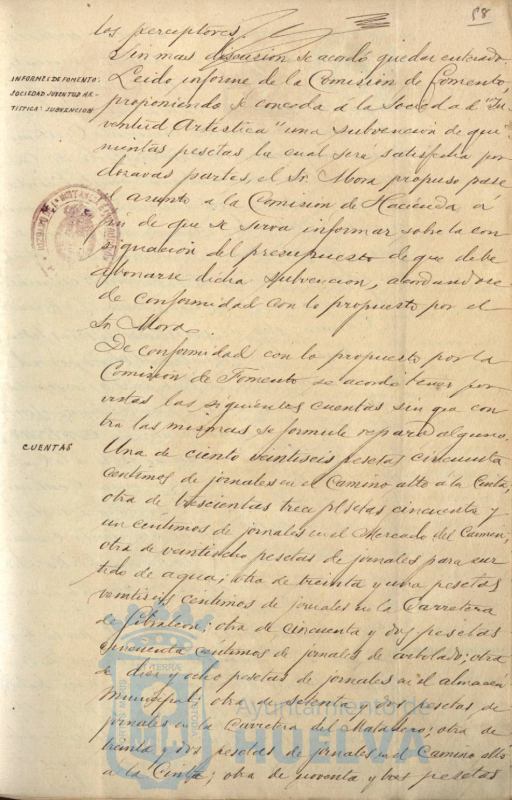 58
los perceptores.
Sin mas discusion se acordó quedar enterado.
INFORMES DE FOMENTO:
SOCIEDAD JUVENTUD AR-
TISTICA: SUBVENCION
Leido informe de la Comisión de Fomento,
proponiendo se conceda á la Sociedad "Ju-
ventud Artistica" una subvencion de qui-
nientas pesetas la cual será satisfecha por
dozavas partes, el Sr. Mora propuso pase
el asunto a la Comision de Hacienda á
fin de que se sirva informar sobre la con
signación del presupuesto de que debe
abonarse dicha subvencion, acordandose
de conformidad con lo propuesto por el
Sr. Mora.
De conformidad con lo propuesto por la
Comisión de Fomento se acordó tener por
vistas las siguientes cuentas sin que con
tra las mismas se formule reparo alguno.
CUENTAS
Una de ciento veintiseis pesetas cincuenta
centimos de jornales en el Camino alto a la Cinta;
otra de trescientas trece pesetas cincuenta y
un centimos de jornales en el Mercado del Carmen;
otra de veintiocho pesetas de jornales para sur
tido de agua; otra de treinta y una pesetas
veintiseis centimos de jornales en la Carretera
de Gibraleon; otra de cincuenta y dos pesetas
cincuenta centimos de jornales de arbolado; otra
de diez y ocho pesetas de jornales en el almacén
Municipal; otra de setenta y dos pesetas de
jornales en la Carretera del Matadero; otra de
treinta y dos pesetas de jornales en el Camino alto
a la Cinta; otra de noventa y tres pesetas
Ayuntamiento de
HUELVA